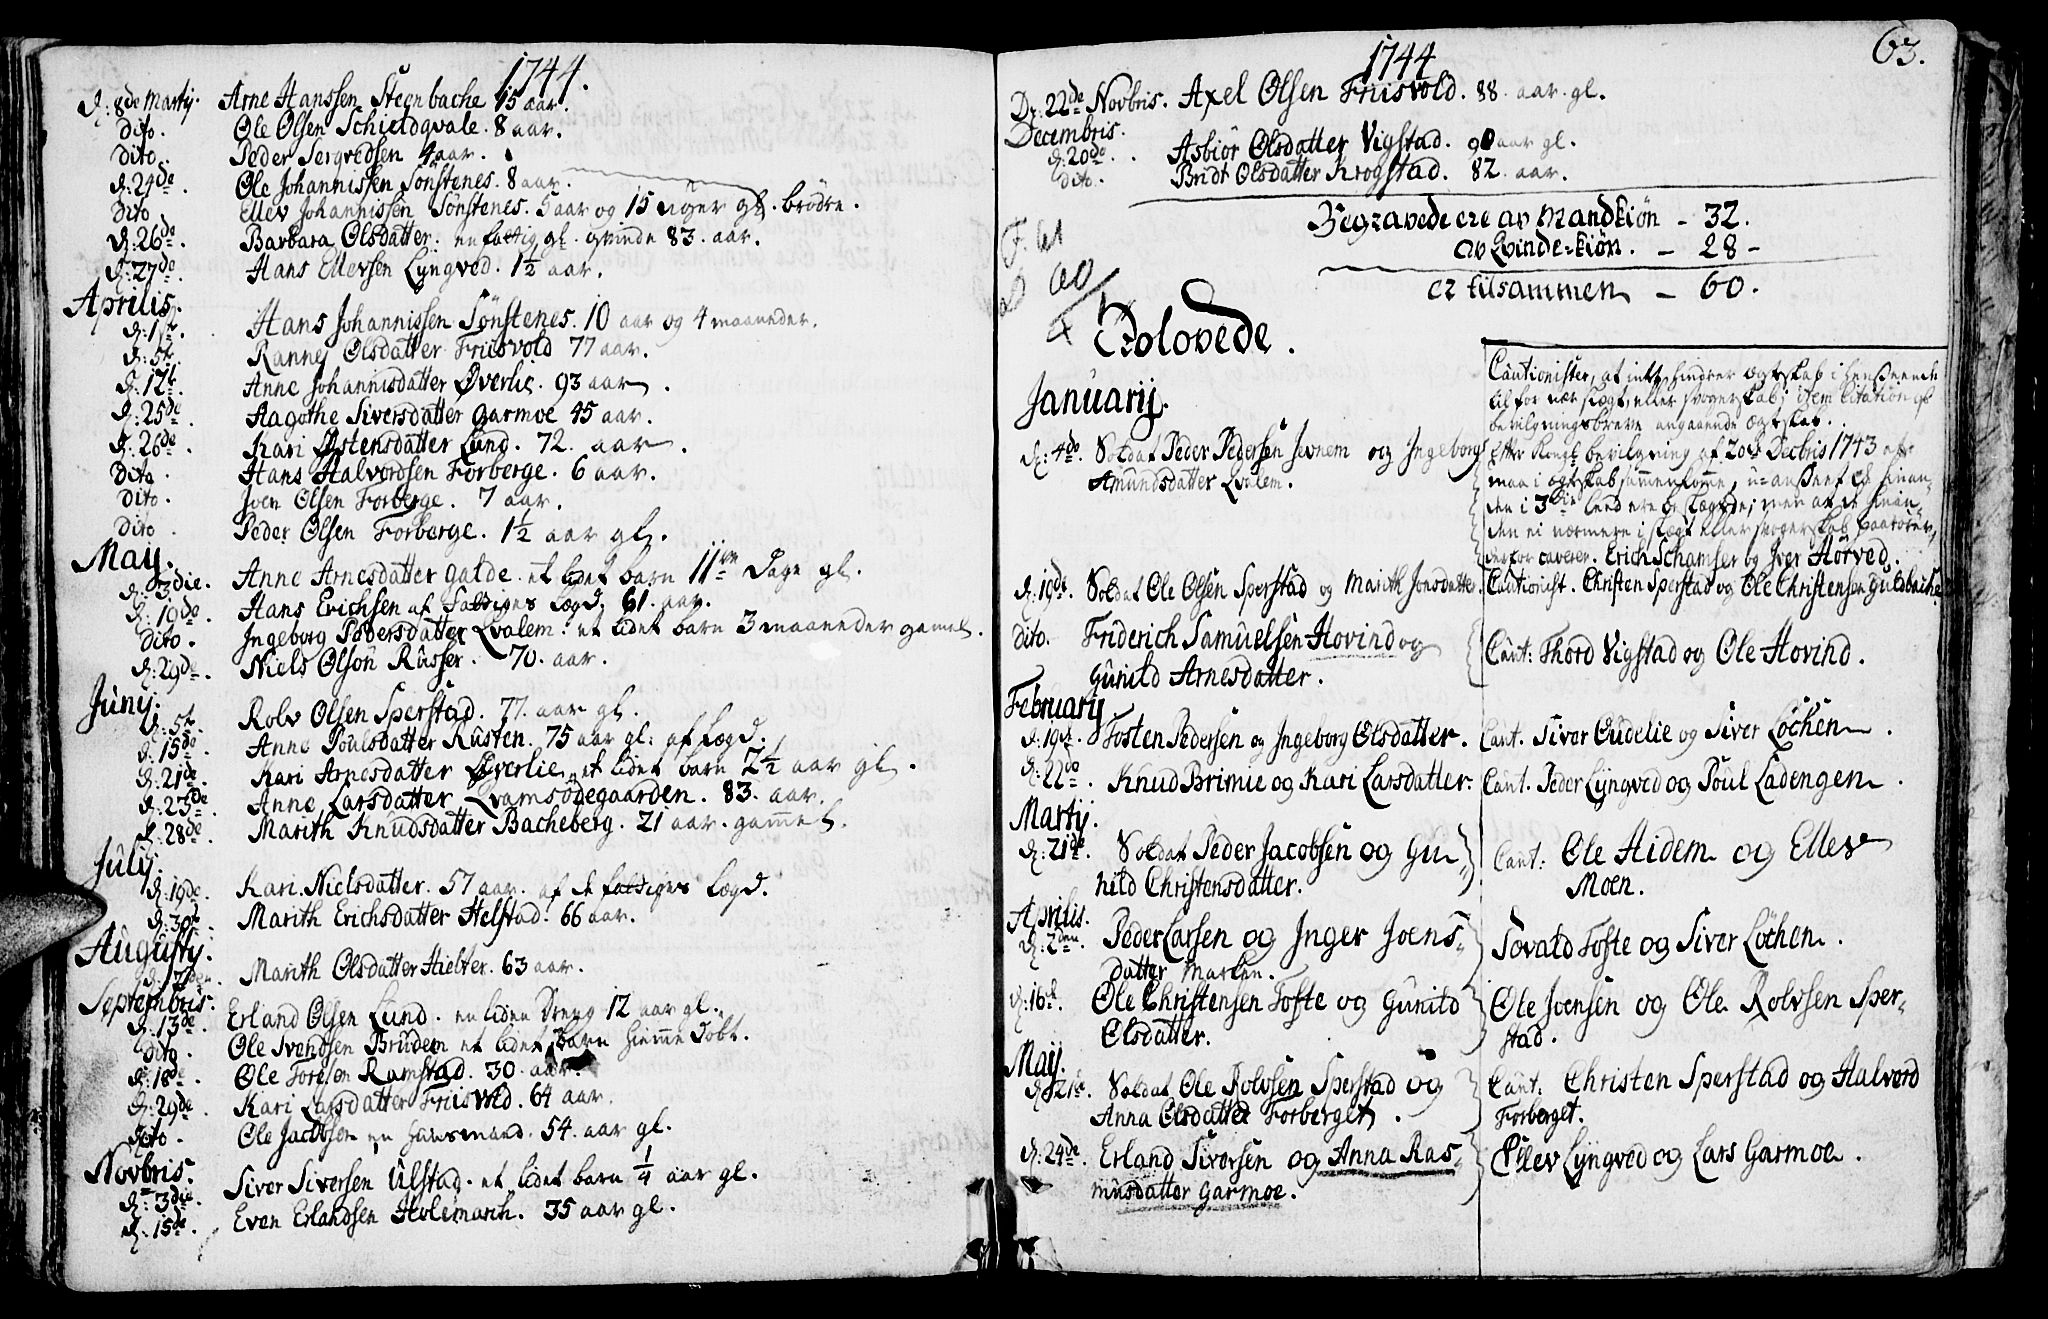 1744.
D: 8de Martij. Arne Hanssen Steenbache 15 aar.
Dito. Ole Olsen Schieldqvale. 8 aar.
Dito. Peder Sergvedsen 4 aar.
D: 24de. Ole Johannissen Sönstenes. 8 aar.
Dito Ellev Johannissen Sönstenes. 5 aar og 15 uger gl. brödre.
D: 26de. Barbara Olsdatter. en fattig gl. qvinde 83. aar.
D: 27de. Hans Ellevsen Lyngved. 1½ aar.
Aprilis.
D: 1ste. Hans Johannissen Sönstenes. 10 aar og 4 maaneder.
D: 5t. Rannej Olsdatter Friisvold 77 aar.
D: 12t. Anne Johannisdatter Øverlie. 93 aar.
D: 25de. Aagothe Siversdatter Garmoe 45 aar.
D: 26de. Kari Østensdatter Lund. 72. aar.
Dito. Hans Halvordsen Forberge. 6 aar.
Dito. Joen Olsen Forberge. 7 aar.
Dito. Peder Olsen Forberge. 1½ aar gl.
May.
D: 3die. Anne Arnesdatter Galde. et lidet barn 11 Dage gl.
D: 19de. Hans Erichsen af Fattiges Lægd. 61. aar.
Dito. Ingeborg Pedersdatter Qvalem. et lidet barn 3 maaneder gamel.
D: 29de. Niels Olsön Russer. 70. aar.
Junij.
D: 5t. Rolv Olsen Sperstad. 77. aar gl.
D: 15de. Anne Poulsdatter Rusten. 75 aar gl: af Lægd.
D: 21de. Kari Arnesdatter Øverlie, et lidet barn 2½ aar gl.
D: 23de. Anne Larsdatter Qvamsödegaarden. 83. aar.
D: 28de. Marith Knudsdatter Bacheberg. 21 aar. gammel.
Julij.
D: 19de. Kari Nielsdatter. 57 aar. af de fattiges Lægd.
D: 30t. Marith Erichsdatter Helstad. 66 aar.
Augustj.
D: 2den. Marith Olsdatter Hielter. 63 aar.
Septembris.
D: 13de. Erland Olsen Lund. en liden Dreng 12 aar gl.
Dito. Ole Svendsen Bruden et lidet barn hiemme Döbt.
D: 18de. Ole Toresen Ramstad. 30. aar.
D: 29de. Kari Larsdatter Friisvold. 64 aar.
Dito. Ole Jacobsen en huusmand. 54. aar gl.
Novbris.
D: 3die. Siver Siversen Ulstad. et lidet barn ¼ aar gl.
D: 15de. Even Erlandsen Holemarch. 35 aar gl.
1744
63.
D: 22de Novbris. Axel Olsen Friisvold. 88. aar. gl.
Decembris.
D: 20de. Asbiör Olsdatter Vigstad. 90 aar gl.
dito. Bridt Olsdatter Krogstad. 82. aar.
Begravede ere av Mandkiön - 32.
av Qvinde-kiön. - 28 -
er tilsammen - 60.
60
4
Trolovede.
Januarij.
D: 4de. Soldat Peder Pedersen Jevnem og Ingeborg
Amundsdatter Qvalem.
Cautionister, at intet hindrer ægteskab i henseende
til for nær slægt, eller svogerskab; item citation af
bevilgningsbreve angaaende ægteskab.
Efter Kongl: bevilgning af 20de Decbris 1743 at
maa i ægteskab sammenkomme, u-anseet de hinan-
den i 3die leed ere beslægtede; men at de hinan-
den ei nærmere i slægt eller svogerskab paarörer,
derfor caverer. Erich Schamser og Iver Hörved.
D: 19de. Soldat Ole Olsen Sperstad og Marith Jonsdatter. Cautionist. Christen Sperstad og Ole Christensen Guldbache.
Dito. Friderich Samuelsen Hovind og
Gunild Arnesdatter.
Caut: Thord Vigstad og Ole Hovind.
Februarij.
D: 19de. Tosten Pedersen og Ingeborg Olsdatter. Caut. Siver Oudelie og Siver Löchen.
D: 22de Knud Brimie og Kari Larsdatter. Caut. Peder Lyngved og Poul Ladengen.
Martij.
D: 21de. Soldat Peder Jacobsen og Gu
hild Christensdatter.
Caut: Ole Hidem og Ellev
Moen.
Aprilis.
D: 2den. Peder Larsen og Inger Joens-
datter Marlen.
Sovald Tofte og Siver Löchen.
D: 16d. Ole Christensen Tofte og Gunild
Olsdatter.
Ole Joensen og Ole Rolvsen Sper-
stad.
Maij.
D: 21de. Soldat Ole Rolvsen Sperstad og
Anna Olsdatter Forberget.
Caut: Christen Sperstad og Halvord
Forberget.
D: 24de. Erland Siversen og Anna Ras-
musdatter Garmoe.
Ellev Lyngved og Lars Garmoe.